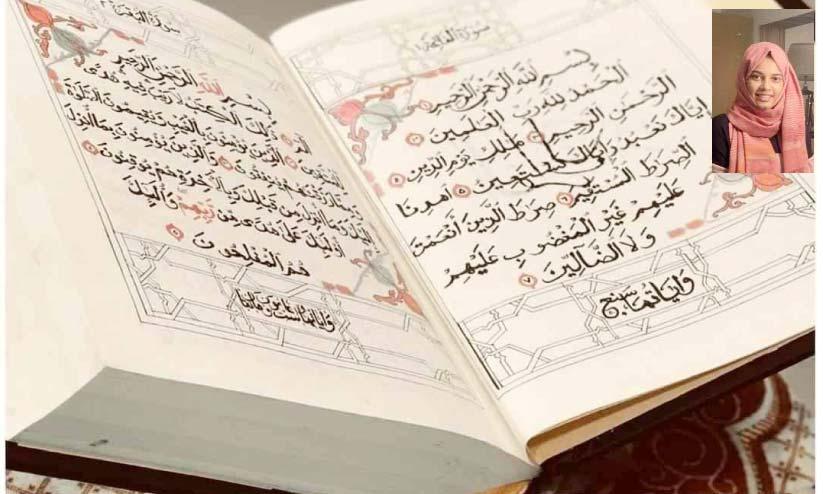 سورة الفاتحة
بسم الله الرحمن الرحيم ١
الحمد لله رب العلمين ٢
الرحمن الرحيم ٣ ملك يوم الدين ٤
اياك نعبد واياك نستعين ٥ اهدنا
الصرط المستقيم ٦ صرط الذين انعمت
عليهم غير المغضوب عليهم
ولا الضالين ٧
واياتها سبع
سورة البقرة ٢
بسم الله الرحمن الرحيم
الم ١ ذلك الكتب لا ريب فيه هدى
للمتقين ٢ الذين يؤمنون بالغيب ويقيمون الصلوة
ومما رزقنهم ينفقون ٣ والذين يؤمنون بما انزل
اليك وما انزل من قبلك وبالاخرة هم يوقنون ٤
اولئك على هدى من ربهم واولئك
هم المفلحون ٥